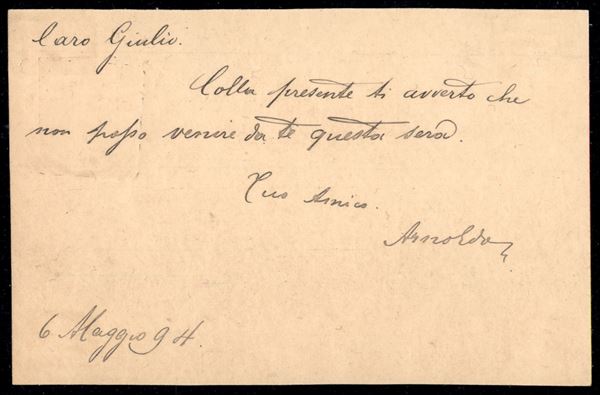 Caro Giulio.
Colla presente ti avverto che
non posso venire da te questa sera.
Tuo Amico.
Arnoldo
6 Maggio 94.